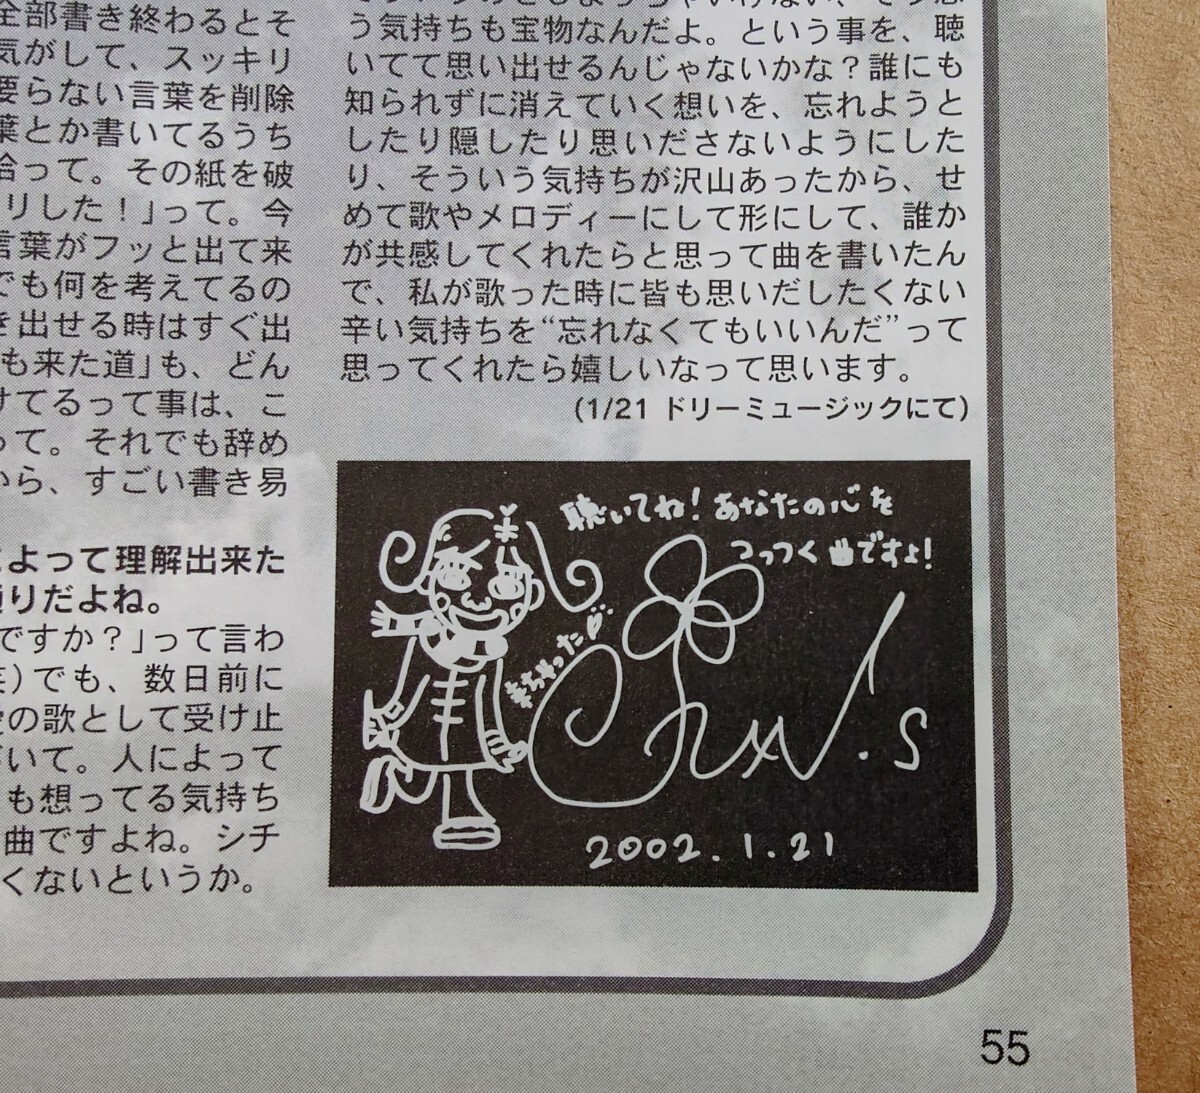 全部書き終わるとそ
気がして、スッキリ
要らない言葉を削除
葉とか書いてるうち
拾って。その紙を破
リした！」って。今
言葉がフッと出て来
でも何を考えてるの
き出せる時はすぐ出
も来た道」も、どん
けてるって事は、こ
って。それでも辞め
から、すごい書き易
によって理解出来た
通りだよね。
ですか？」って言わ
笑)でも、数日前に
愛の歌として受け止
づいて。人によって
も想ってる気持ち
曲ですよね。シチ
くないというか。
う気持ちも宝物なんだよ。という事を、聴
いてて思い出せるんじゃないかな？誰にも
知られずに消えていく想いを、忘れようと
したり隠したり思いださないようにした
り、そういう気持ちが沢山あったから、せ
めて歌やメロディーにして形にして、誰か
が共感してくれたらと思って曲を書いたん
で、私が歌った時に皆も思いだしたくない
辛い気持ちを“忘れなくてもいいんだ”って
思ってくれたら嬉しいなって思います。
(1/21 ドリーミュージックにて)
聴いてね！あなたの心を
つっつく曲ですよ！
2002.1.21
55